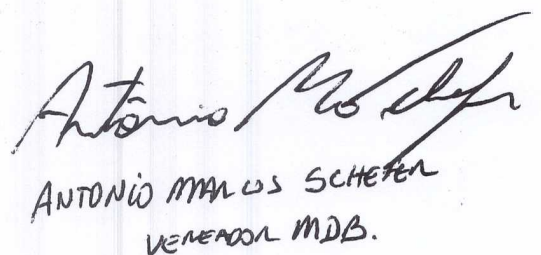 Antônio
ANTONIO MARCUS SCHEFER
VEREADOR MDB.